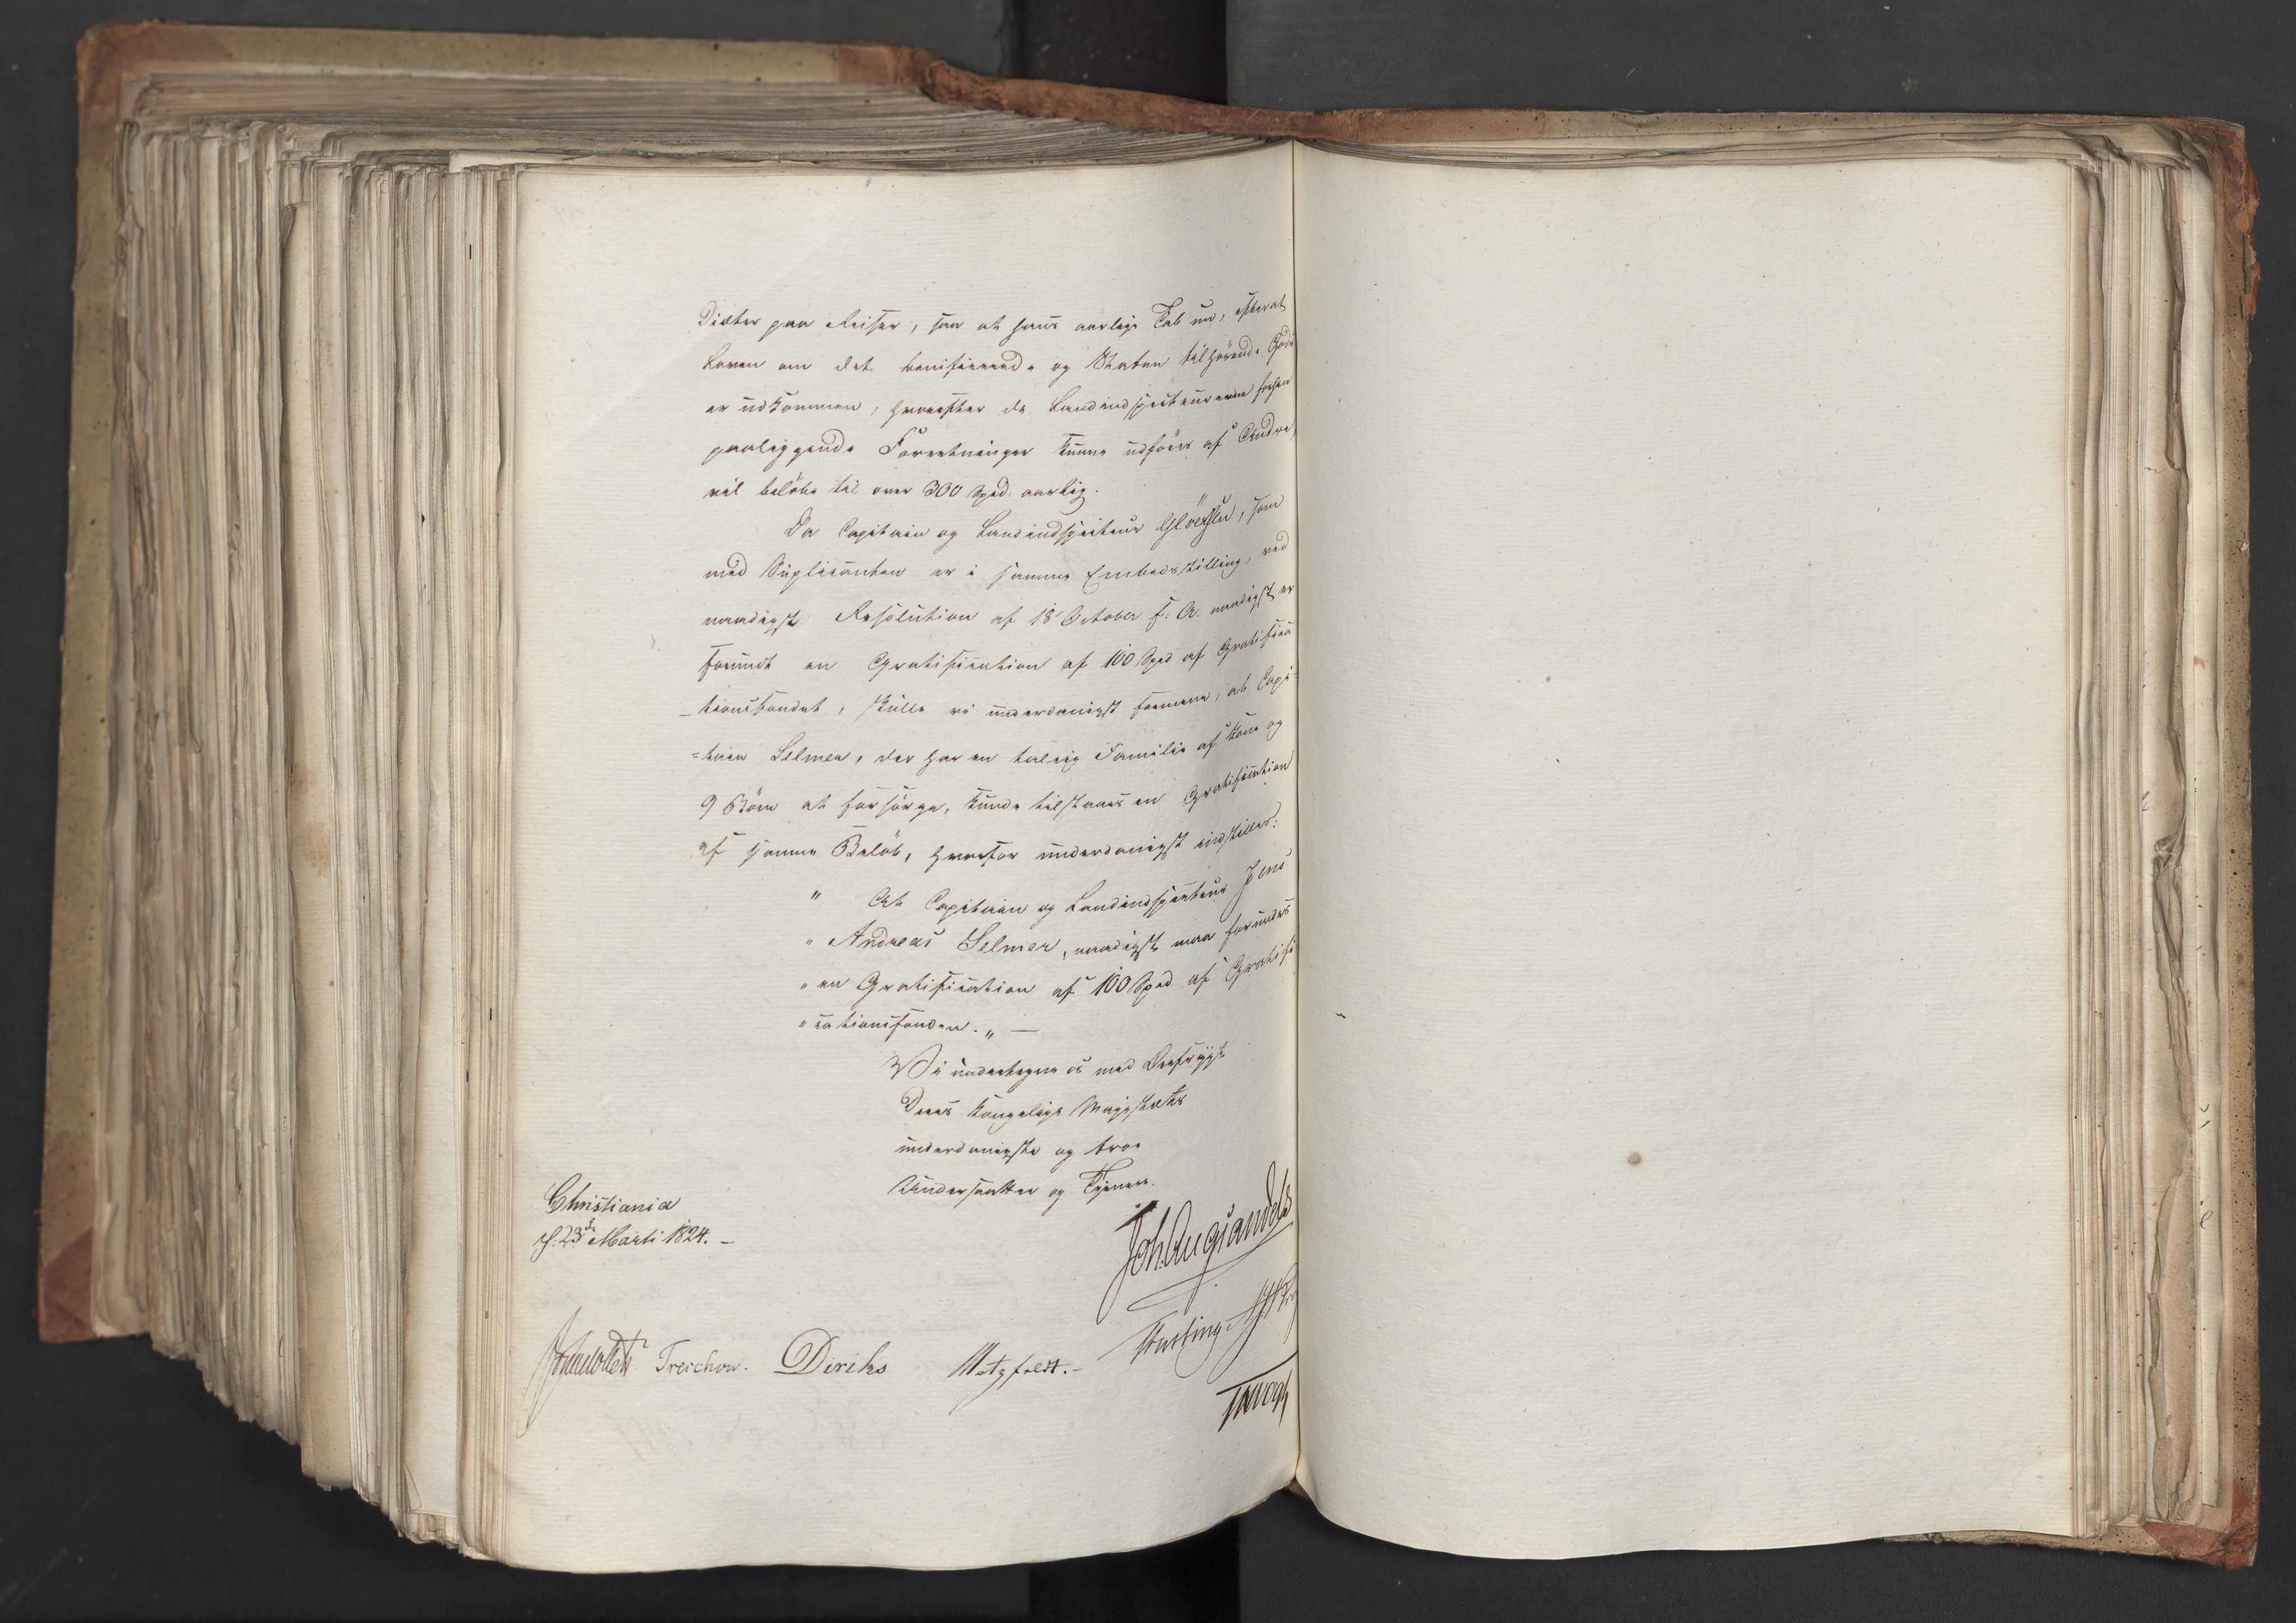 Diæter paa Reiser, saa at hans aarlige Tab nu, efterat
Loven om det beneficerede og Staten tilhørende Gods
er udkommen, hvorefter de Landinspecteurerne forhen
paaliggende Forretninger kunne udføres af Andre,
vil beløbe til over 300 Spd: aarlig.
Da Capitain og Landindspecteur Glöersen, som
med Suplicanten er i samme Embedsstilling, ved
naadigst Resolution af 18 October f: A. naadigst er
forundt en Gratification af 100 Spd af Gratifica
-tionsfondet, skulle vi underdanigst formene, at Capi=
=tain Selmer, der har en talrig Familie af Kone og
9 Börn at forsörge, kunde tilstaaes en Gratification
af samme Belöb, hvorfor underdanigst indstilles:
" At Capitain og Landindspecteur Jens
" Andreas Selmer, naadigst maa forundes
" en Gratification af 100 Spd af Gratifi
" cationsfonden. " —
Vi undertegne os med Dybfrygt
Deres Kongelige Majestæts
underdanigste og troe
Undersaatter og Tjenere.
Christiania
d: 23de Marti 1824. -
Joh. Aug. Sandels
Treschow. Diriks Motzfeldt. -